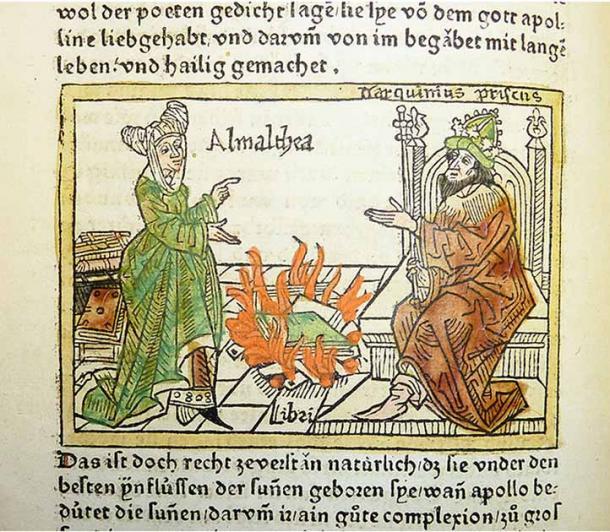 wol der poeten gedicht sagē sie sye vō dem gott apol⸗
line liebgehabt, vnd darvm̄ von im begābet mit langē
leben/vnd hailig gemachet.
Tarquinius priscus
Almalthea
Libri
Das ist doch recht zeverstān natürlich/dz sie vnder den
besten ÿnflüssen der suñen geboren sye/wañ apollo be⸗
dütet die suñen/darvm̄ ir/ain gůte complexion/zů gros